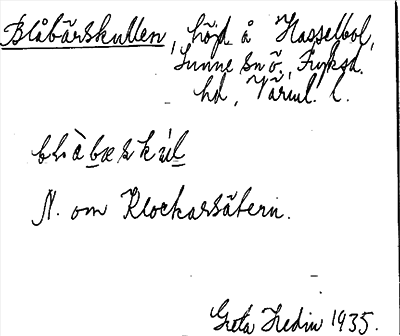 Blåbärskullen, höjd å Hasselbol,
Sunne sn ö., Fryksd.
hd, Värml. l.
blàbæskúl
N. om Klockarsätern.
Greta Hedin 1935.